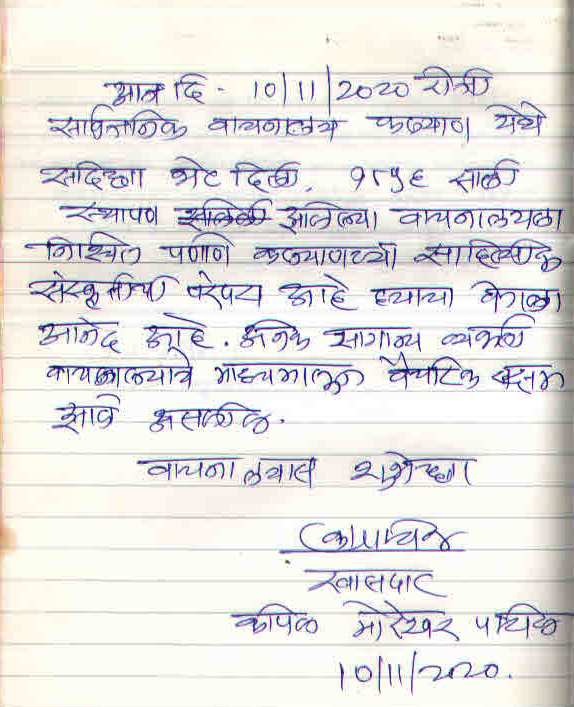 आज दि - 10/11/2020 रोजी
सार्वजनिक वाचनालय कल्याण येथे
सदिच्छा भेट दिली. १८५६ साली
स्थापण झालेल्या वाचनालयला
निश्चित पणाणे कल्याणच्या साहित्यिक
संस्कृतीची परंपरा आहे ह्याचा
आनंद आहे. अनेक सामान्य
वाचनालयाचे माध्यमातून वैचारिक
असतील.
वाचनालयास शुभेच्छा
खासदार
कपिल मोरेश्वर पाटिल
10/11/2020.